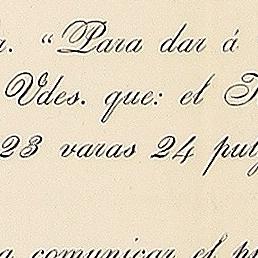 r. "Para dar á
Vdes. que: el
23 varas 24 pulg
a comunicar el p